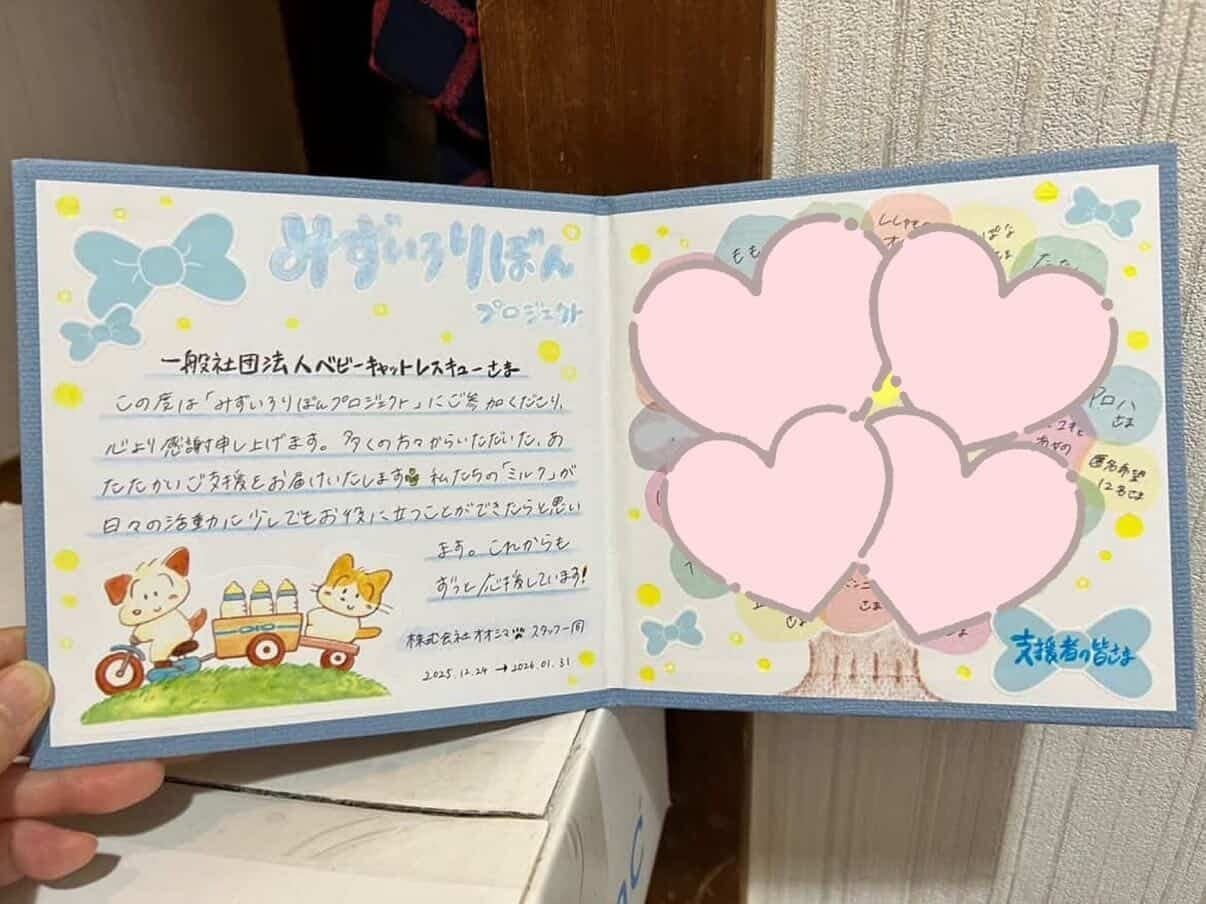 みずいろりぼん
プロジェクト
一般社団法人ベビーキャットレスキューさま
この度は「みずいろりぼんプロジェクト」にご参加くださり、
心より感謝申し上げます。多くの方々からいただいた、あ
たたかいご支援をお届けいたします 私たちの「ミルク」が
日々の活動に少しでもお役に立つことができたらと思い
ます。これからも
ずっと応援しています!
株式会社オオシマ スタッフ一同
2025.12.24 → 2026.01.31
もも
アロハ
さま
匿名希望
12名さま
さま
さま
支援者の皆さま